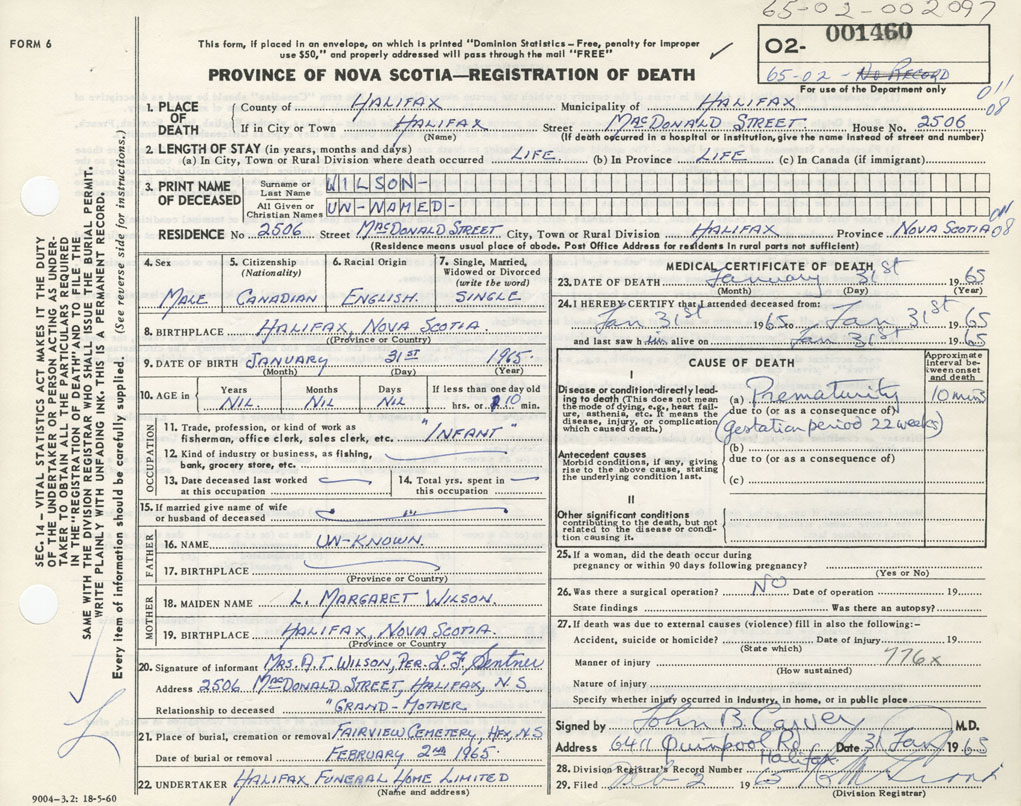 65-02-002097
FORM 6
This form, if placed in an envelope, on which is printed "Dominion Statistics – Free, penalty for improper
use $50," and properly addressed will pass through the mail "FREE"
O2- 001460
65-02 - No Record
For use of the Department only
PROVINCE OF NOVA SCOTIA—REGISTRATION OF DEATH
011
08
1. PLACE OF DEATH County of HALIFAX Municipality of HALIFAX
If in City or Town HALIFAX Street MACDONALD STREET House No. 2506
(Name) (If death occurred in a hospital or institution, give the name instead of street and number)
2. LENGTH OF STAY (in years, months and days)
(a) In City, Town or Rural Division where death occurred LIFE (b) In Province LIFE (c) In Canada (if immigrant)
3. PRINT NAME OF DECEASED
Surname or Last Name WILSON-
All Given or Christian Names UN-NAMED-
RESIDENCE No 2506 Street MACDONALD STREET City, Town or Rural Division HALIFAX Province NOVA SCOTIA 08
(Residence means usual place of abode. Post Office Address for residents in rural parts not sufficient)
4. Sex MALE
5. Citizenship (Nationality) CANADIAN
6. Racial Origin ENGLISH.
7. Single, Married, Widowed or Divorced (write the word) SINGLE
8. BIRTHPLACE HALIFAX, NOVA SCOTIA.
(Province or Country)
9. DATE OF BIRTH JANUARY 31ST 1965.
(Month) (Day) (Year)
10. AGE in Years NIL. Months NIL. Days NIL If less than one day old hrs. or 10 min.
OCCUPATION
11. Trade, profession, or kind of work as
fisherman, office clerk, sales clerk, etc. "INFANT"
12. Kind of industry or business, as fishing,
bank, grocery store, etc.
13. Date deceased last worked
at this occupation
14. Total yrs. spent in
this occupation
15. If married give name of wife
or husband of deceased
FATHER
16. NAME UN-KNOWN.
17. BIRTHPLACE
(Province or Country)
MOTHER
18. MAIDEN NAME L. MARGARET WILSON.
19. BIRTHPLACE HALIFAX, NOVA SCOTIA.
(Province or Country)
20. Signature of informant MRS. A.T. WILSON, PER. L.F. Sentner
Address 2506 MACDONALD STREET, HALIFAX, N.S
Relationship to deceased "GRAND-MOTHER
21. Place of burial, cremation or removal FAIRVIEW CEMETERY, HFX, N.S
Date of burial or removal FEBRUARY 2nd 1965.
22. UNDERTAKER HALIFAX FUNERAL HOME LIMITED
(Name and address)
9004-3.2: 18-5-60
MEDICAL CERTIFICATE OF DEATH
23. DATE OF DEATH January 31st 1965
(Month) (Day) (Year)
24. I HEREBY CERTIFY that I attended deceased from:
Jan 31st 1965 to Jan 31st 1965
and last saw him alive on Jan 31st 1965
CAUSE OF DEATH
Approximate interval between onset and death
I
Disease or condition directly leading
to death (This does not mean
the mode of dying, e.g., heart failure,
asthenia, etc. It means the
disease, injury, or complication
which caused death.)
(a) Prematurity 10 mins
due to (or as a consequence of)
(gestation period 22 weeks)
Antecedent causes
Morbid conditions, if any, giving
rise to the above cause, stating
the underlying condition last.
(b)
due to (or as a consequence of)
(c)
II
Other significant conditions
contributing to the death, but not
related to the disease or condition
causing it.
25. If a woman, did the death occur during
pregnancy or within 90 days following pregnancy?
(Yes or No)
26. Was there a surgical operation? NO Date of operation 19
State findings Was there an autopsy?
27. If death was due to external causes (violence) fill in also the following:-
Accident, suicide or homicide? Date of injury 19
(State which)
Manner of injury 776x
(How sustained)
Nature of injury
Specify whether injury occurred in industry, in home, or in public place
Signed by John B. Carvey M.D.
Address 6411 Quinpool Rd Halifax Date 31 Jan 1965
28. Division Registrar's Record Number
29. Filed Feb 2 1965
(Division Registrar)
SEC. 14 – VITAL STATISTICS ACT MAKES IT THE DUTY
OF THE UNDERTAKER OR PERSON ACTING AS UNDERTAKER
TO OBTAIN ALL THE PARTICULARS REQUIRED
IN THE "REGISTRATION OF DEATH" AND TO FILE THE
SAME WITH THE DIVISION REGISTRAR WHO SHALL ISSUE THE BURIAL PERMIT.
WRITE PLAINLY WITH UNFADING INK. THIS IS A PERMANENT RECORD.
Every item of information should be carefully supplied. (See reverse side for instructions.)